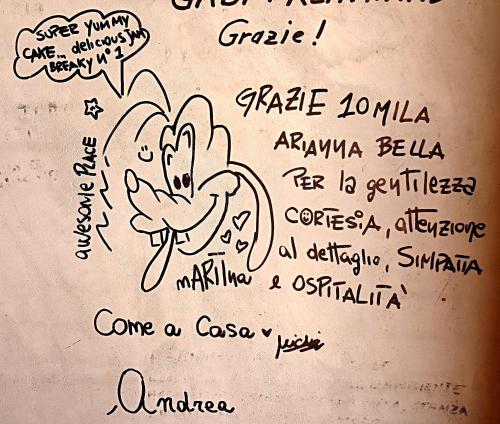 Grazie!
SUPER YUMMY
CAKE... delicious JAM
BREAKY n° 1
awesome PLACE
GRAZIE 10MILA
ARIANNA BELLA
PER la gentilezza
CORTESIA, attenzione
al dettaglio, SIMPATIA
e OSPITALITA'
MARTINA
Come a Casa
Andrea